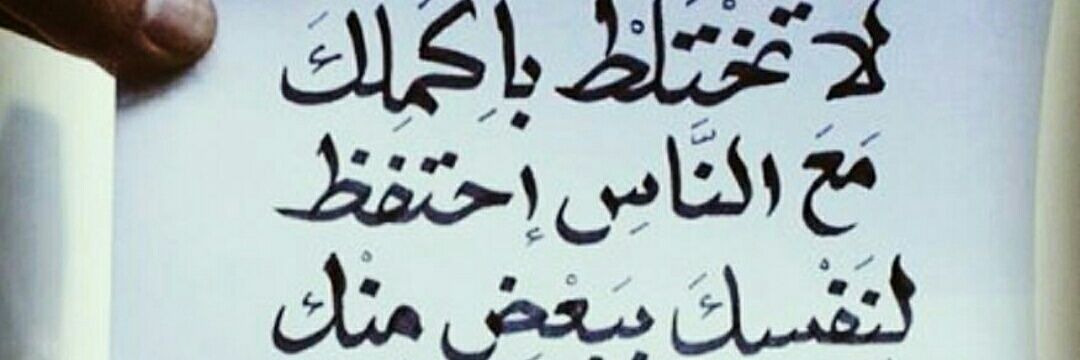 لا تَخْتَلْط بِاكمِلكَ
مَعَ النَّاسِ إحتَفِظ
لنَفْسِكَ بِبَعْضٍ منْك